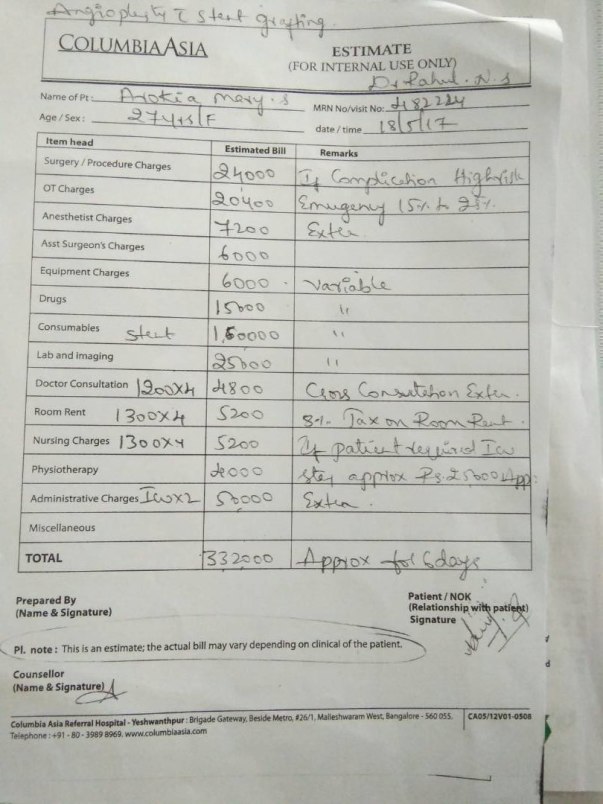 Angioplasty c̄ stent grafting.
COLUMBIA ASIA
ESTIMATE
(FOR INTERNAL USE ONLY)
Dr Rahul. N.S
Name of Pt : Arokia Mary.S
MRN No/visit No: 2182224
Age / Sex : 27yrs/F
date / time 18/5/17
Item head Estimated Bill Remarks
Surgery / Procedure Charges 24000 If Complication Highrisk
OT Charges 20400 Emergency 15% to 25%
Anesthetist Charges 7200 Extra
Asst Surgeon's Charges 6000
Equipment Charges 6000 Variable
Drugs 15000 "
Consumables stent 1,60000 "
Lab and imaging 25000 "
Doctor Consultation 1200x4 4800 Cross Consultation Extra.
Room Rent 1300x4 5200 8% Tax on Room Rent.
Nursing Charges 1300x4 5200 If patient required Icu
Physiotherapy 4000 stay approx Rs.25000 App:
Administrative Charges Icux2 50000 Extra.
Miscellaneous
TOTAL 332000 Approx for 6days
Prepared By
(Name & Signature)
Patient / NOK
(Relationship with patient)
Signature
Pl. note : This is an estimate; the actual bill may vary depending on clinical of the patient.
Counsellor
(Name & Signature)
Columbia Asia Referral Hospital - Yeshwanthpur : Brigade Gateway, Beside Metro, #26/1, Malleshwaram West, Bangalore - 560 055.
Telephone : +91 - 80 - 3989 8969. www.columbiaasia.com
CA05/12V01-0508